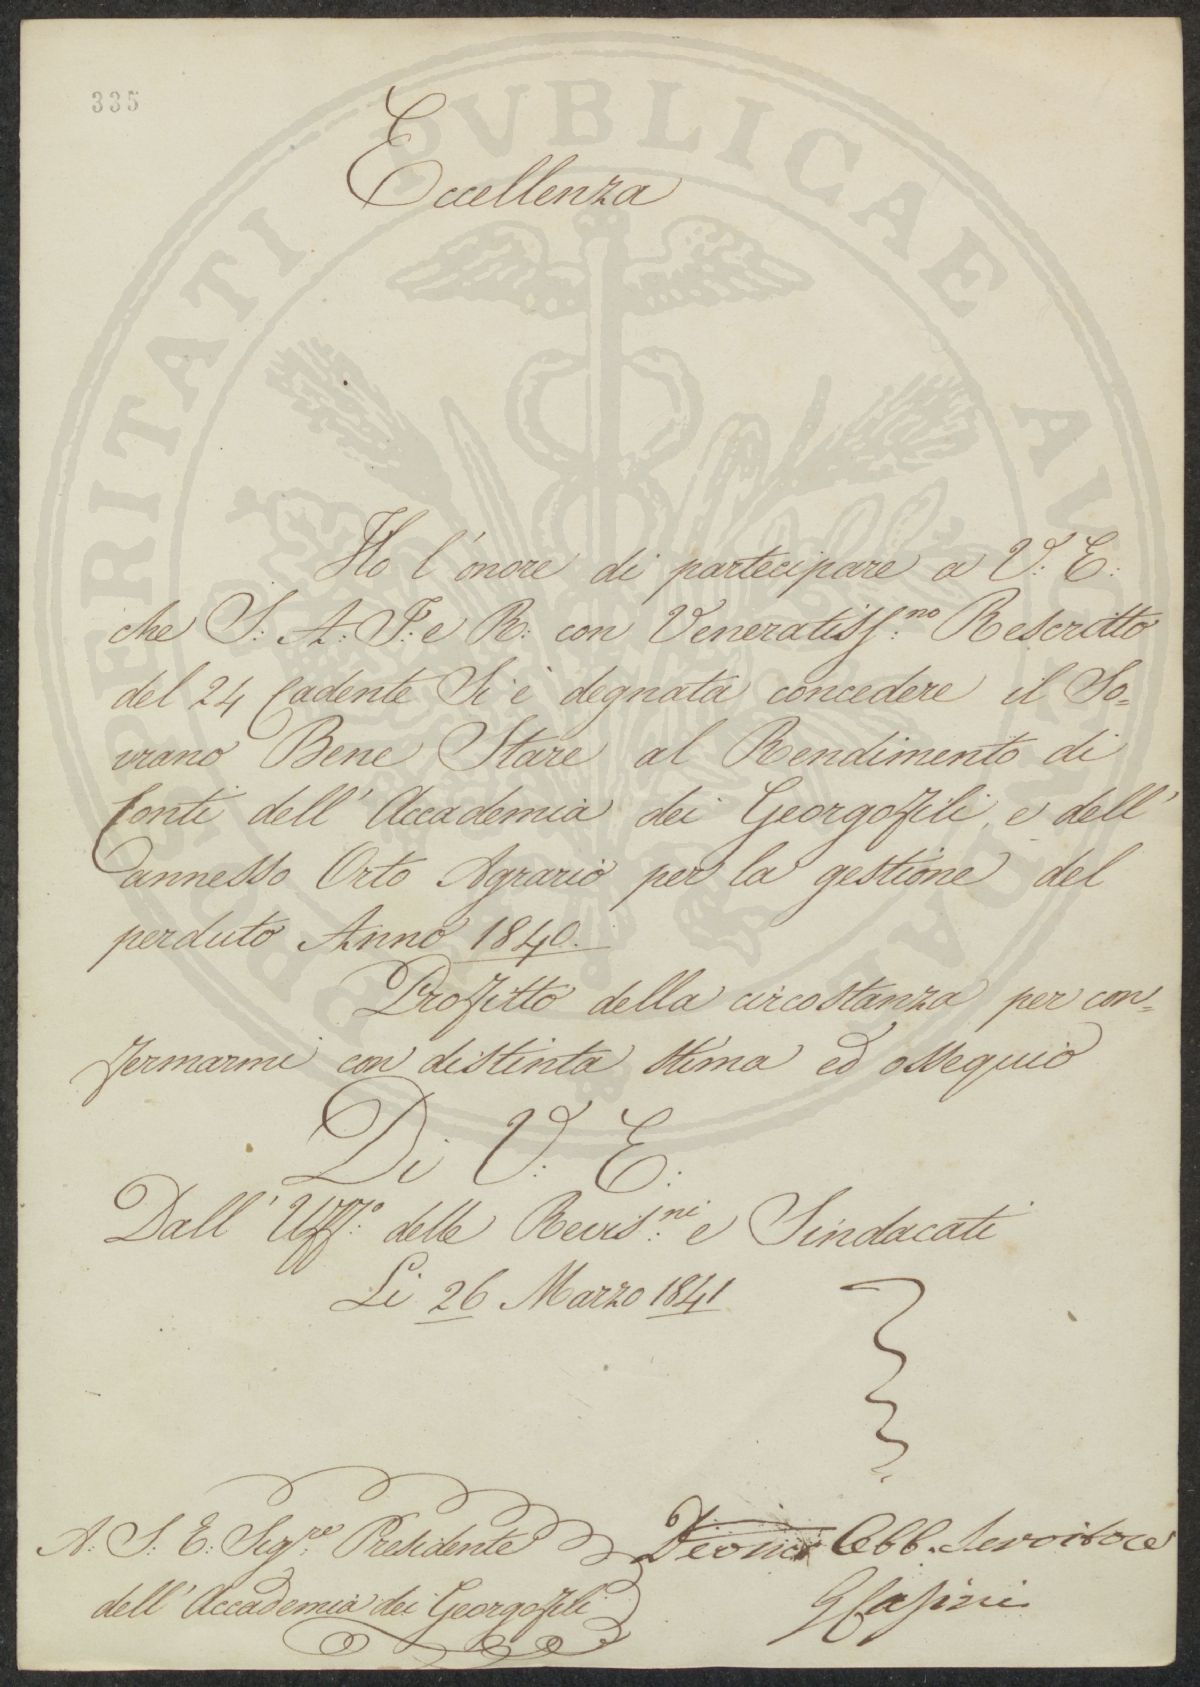 335
Eccellenza
Ho l'onore di partecipare a V: E:
che S: A: I: e R: con Veneratiss:mo Rescritto
del 24 Cadente Si è degnata concedere il So=
vrano Bene Stare al Rendimento di
Conti dell' Accademia dei Georgofili, e dell'
annesso Orto Agrario per la gestione del
perduto Anno 1840.
Profitto della circostanza per con=
fermarmi con distinta stima ed ossequio
Di V: E:
Dall' Uff:o delle Revis:ni e Sindacati
Li 26 Marzo 1841
A: S: E: Sig:re Presidente
dell' Accademia dei Georgofili
Obb. Servitore
PROSPERITATI PVBLICAE AVGENDAE